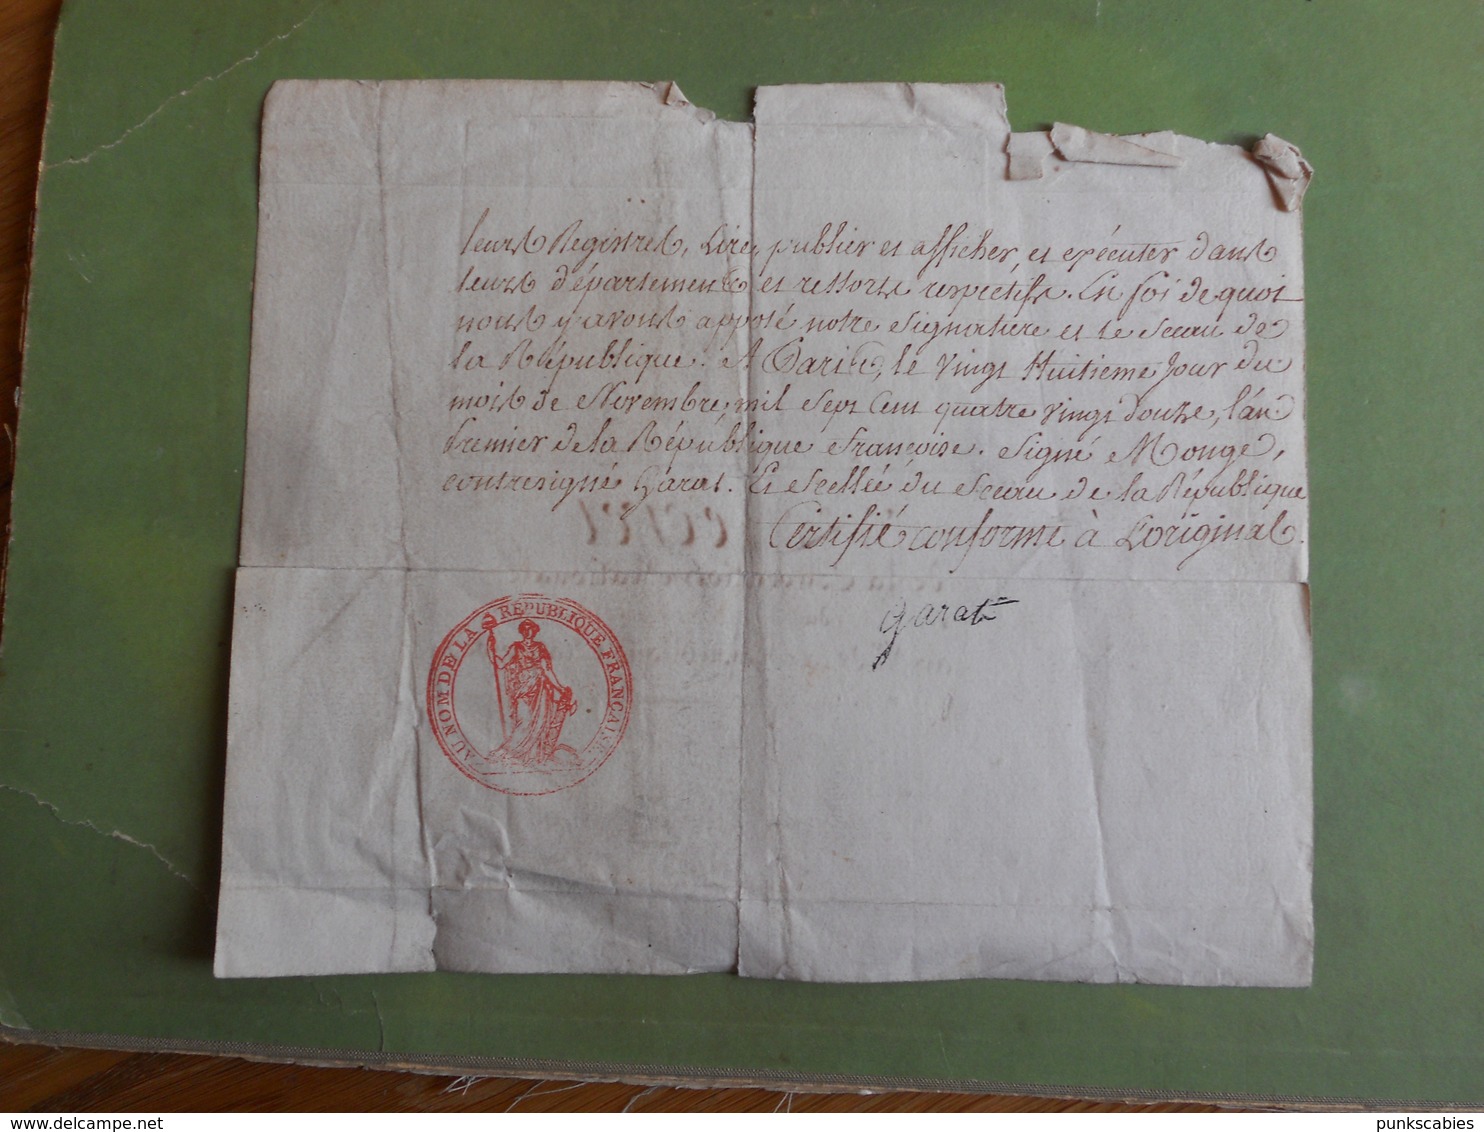 leurs Registres, Lire, publier et afficher, et exécuter dans
leurs départements et ressorts respectifs. En foi de quoi
nous y avons apposé notre Signature et le Sceau de
la République. A Paris, le vingt Huitieme Jour du
mois de Novembre mil Sept Cent quatre vingt douze, l'an
premier de la République françoise. Signé Monge,
contresigné Garat. Et Scellée du Sceau de la République
Certifié conforme à L'original.
Garat
AU NOM DE LA RÉPUBLIQUE FRANÇAISE.
delcampe.net
punkscabies